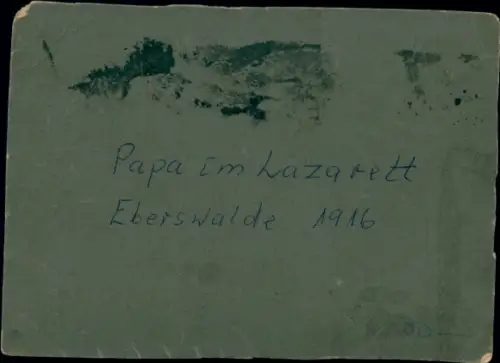 Papa im Lazarett
Eberswalde 1916